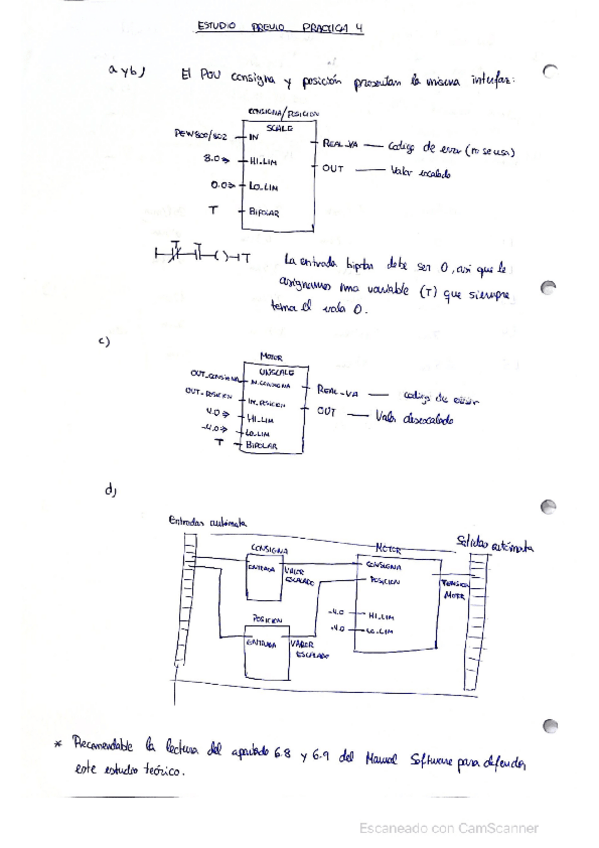 ESTUDIO PREVIO PRACTICA 4
a y b) El POU consigna y posición presentan la misma interfaz:
CONSIGNA/POSICION
SCALE
PEW800/802 IN
8.0 HI_LIM
0.0 LO_LIM
T BIPOLAR
REAL_VA codigo de error (no se usa)
OUT Valor escalado
T
La entrada bipolar debe ser 0, asi que le
asignamos una variable (T) que siempre
tema el valor 0.
c)
MOTOR
UNSCALE
OUT_CONSIGNA IN_CONSIGNA
OUT_POSICION IN_POSICION
4.0 HI_LIM
-4.0 LO_LIM
T BIPOLAR
REAL_VA codigo de error
OUT Valor desescalado
d)
Entradas autómata
Salidas autómata
CONSIGNA
ENTRADA VALOR
ESCALADO
POSICION
ENTRADA VALOR
ESCALADO
MOTOR
CONSIGNA
POSICION
-4.0 HI_LIM
-4.0 LO_LIM
TENSION
MOTOR
* Recomendable la lectura del apartado 6.8 y 6.9 del Manual Software para defender
este estudio teórico.
Escaneado con CamScanner